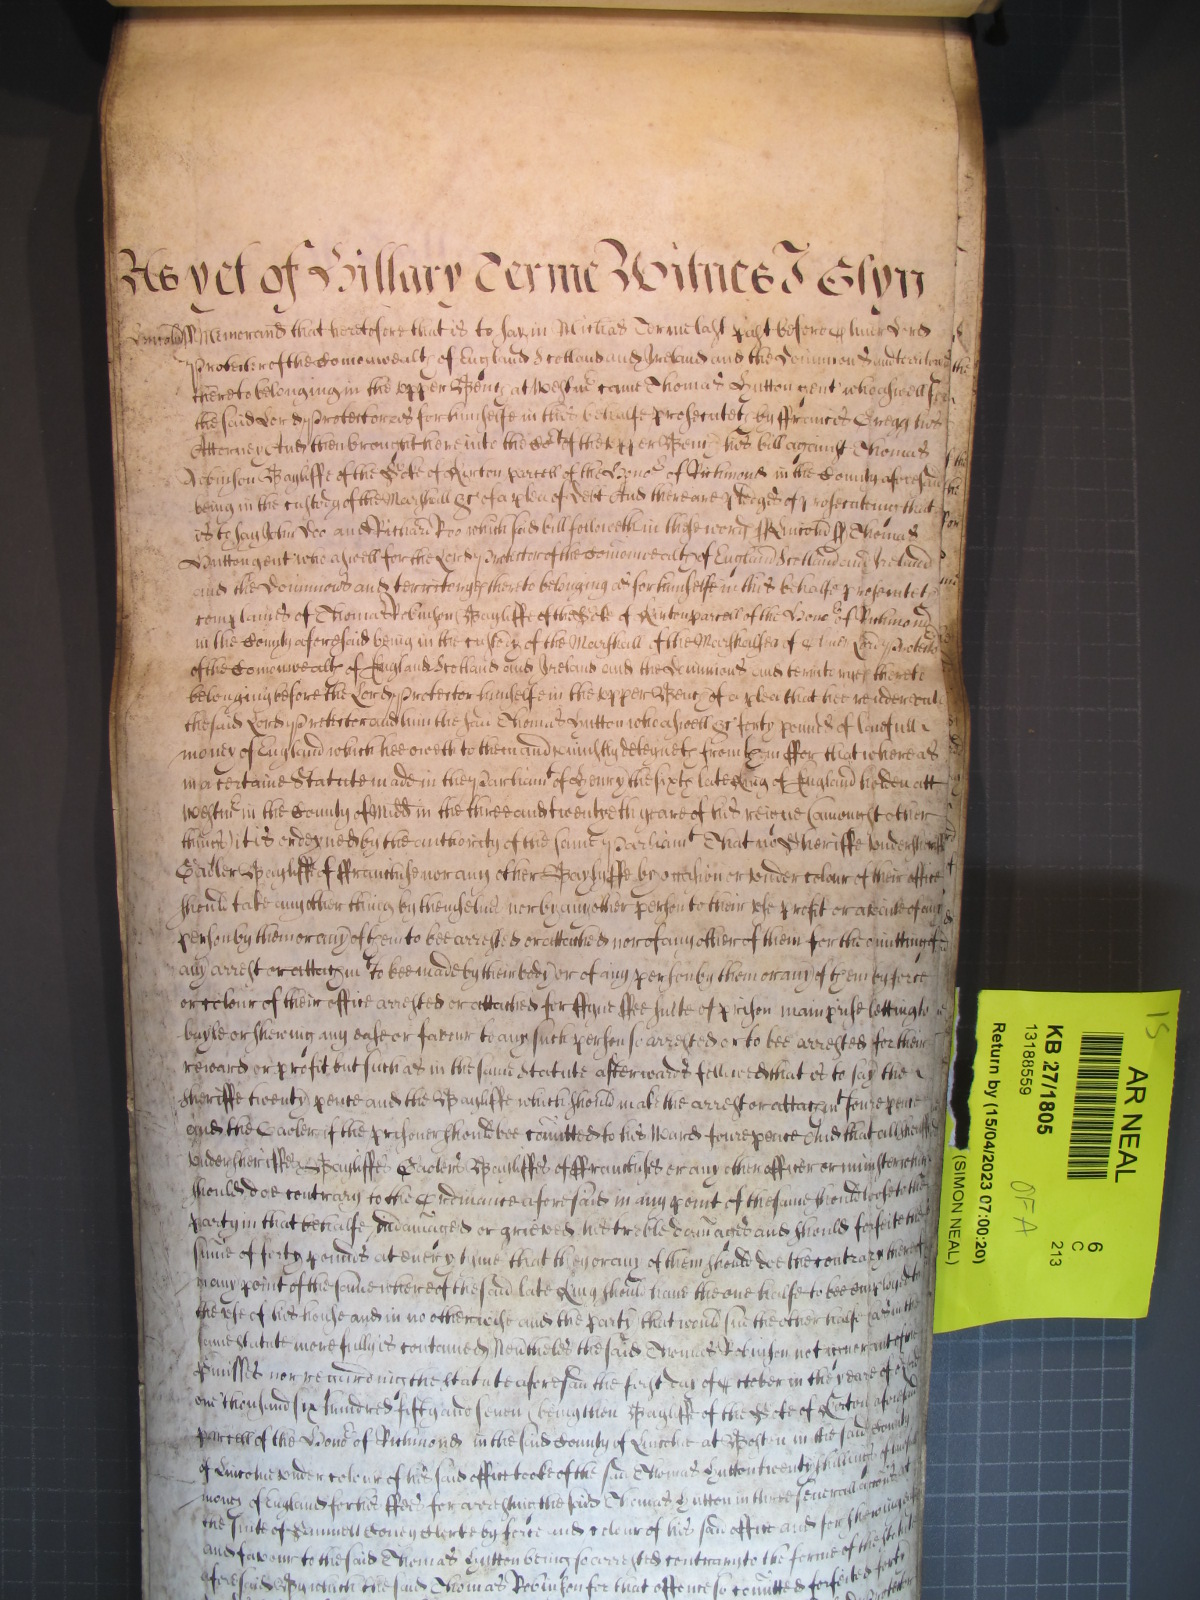 As yet of Hillary Terme Witnes J Glyn
Lincoln ss Memorand that heretofore that is to say in Michas Terme last past before Oliver Lord
Protector of the Comonwealth of England Scotland and Ireland and the Dominions and territories
thereto belonging in the upper Bench at Westmr came Thomas Hutton gent who aswell for
the said Lord Protector as for himselfe in this behalfe prosecuteth by ffrancis Gregg his
Attorney And then brought here into the Court of the upper Bench his bill against Thomas
Robinson Bayliffe of the Soke of Kirton parcell of the Honor of Richmond in the County aforesaid
being in the custody of the Marshall &c of a plea of Debt And there are pledges of prosecuting that
is to say John Doo and Richard Roo which said bill followeth in these words ss Lincoln ss Thomas
Hutton gent who aswell for the Lord Protector of the Comonwealth of England Scotland and Ireland
and the Dominions and territoryes thereto belonging as for himselfe in this behalfe prosecuteth
complaines of Thomas Robinson Bayliffe of the Soke of Kirton parcell of the Honor of Richmond
in the County aforesaid being in the custody of the Marshall of the Marshalsea of Oliver Lord Protector
of the Comonwealth of England Scotland and Ireland and the Dominions and territoryes thereto
belonging before the Lord Protector himselfe in the upper Bench of a plea that hee render unto
the said Lord Protector and him the said Thomas Hutton who aswell &c forty pounds of lawfull
money of England which hee oweth to them and uniustly deteyneth from them ffor that whereas
in a certaine Statute made in the Parliamt of Henry the sixth late King of England holden att
Westmr in the County of Midd in the three and twentyeth yeare of his reigne (amongst other
things) it is ordeyned by the authority of the same Parliamt That noe Sheriffe undersheriff
Gaoler Bayliffe of ffranchise nor any other Bayliffe by occasion or under colour of their office
should take any other thing by themselves nor by any other person to their use profit or availe of any
person by them or any of them to bee arrested or attached nor of any other of them for the omitting of
any arrest or attachmt to bee made by their body or of any person by them or any of them by force
or colour of their office arrested or attached for ffyne ffee suite of prison mainprise letting to
bayle or shewing any ease or favour to any such person so arrested or to bee arrested for their
reward or profit but such as in the same Statute afterwards followed that is to say the
Sheriffe twenty pence and the Bayliffe which should make the arrest or attachmt foure pence
and the Gaoler if the prisoner should bee comitted to his Ward foure pence And that all Sheriffes
undersheriffes Bayliffes Gaolers Bayliffes of ffranchises or any other officer or minister which
should doe contrary to the Ordinance aforesaid in any point of the same should loose to the
party in that behalfe indamaged or grieved his treble damages and should forfeite the
sume of forty pounds at every tyme that they or any of them should doe the contrary thereof
in any point of the same whereof the said late King should have the one halfe to bee employed to
the use of his house and in no otherwise and the party that would sue the other halfe (as in the
same Statute more fully is contayned) Neverthelesse the said Thomas Robinson not ignorant of the
premisses nor regarding the Statute aforesaid the first day of October in the yeare of or Lord
one thousand six hundred fifty and seven (being then Bayliffe of the Soke of Kirton aforesaid
parcell of the Honor of Richmond in the said County of Lincolne at Boston in the said County
of Lincolne under colour of his said office tooke of the said Thomas Hutton twenty shillings of lawfull
money of England for his ffees for arresting the said Thomas Hutton in three severall accons at
the suite of Clerke by force and colour of his said office and for shewing
and favour to the said Thomas Hutton being so arrested contrary to the forme of the Statute
aforesaid By which the said Thomas Robinson for that offence so comitted forfeited forty
AR NEAL
KB 27/1805
13188559
Return by (15/04/2023 07:00:20)
(SIMON NEAL)
6
C
213
OFA
15